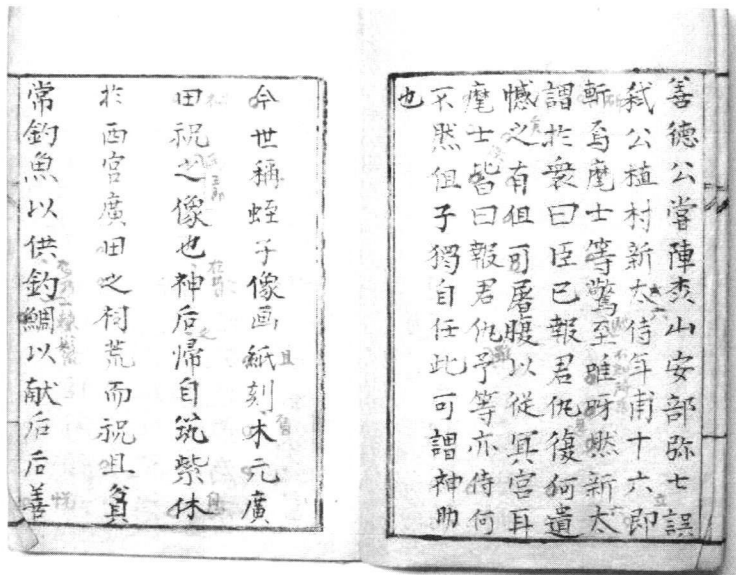 善德公嘗陣森山安部弥七誤
弒公植村新太侍年甫十六即
斬焉麾士等驚至雖呀燃新太
謂於衆曰臣已報君仇復何遺
憾之有但可屠腹以従冥宮耳
麾士皆曰報君仇予等亦侍何
不然但子獨自任此可謂神助
也
今世稱蛭子像画紙刻木元廣
田祝之像也神后帰自筑紫休
於西宮廣田之祠荒而祝且貧
常釣魚以供釣鯛以献后后善